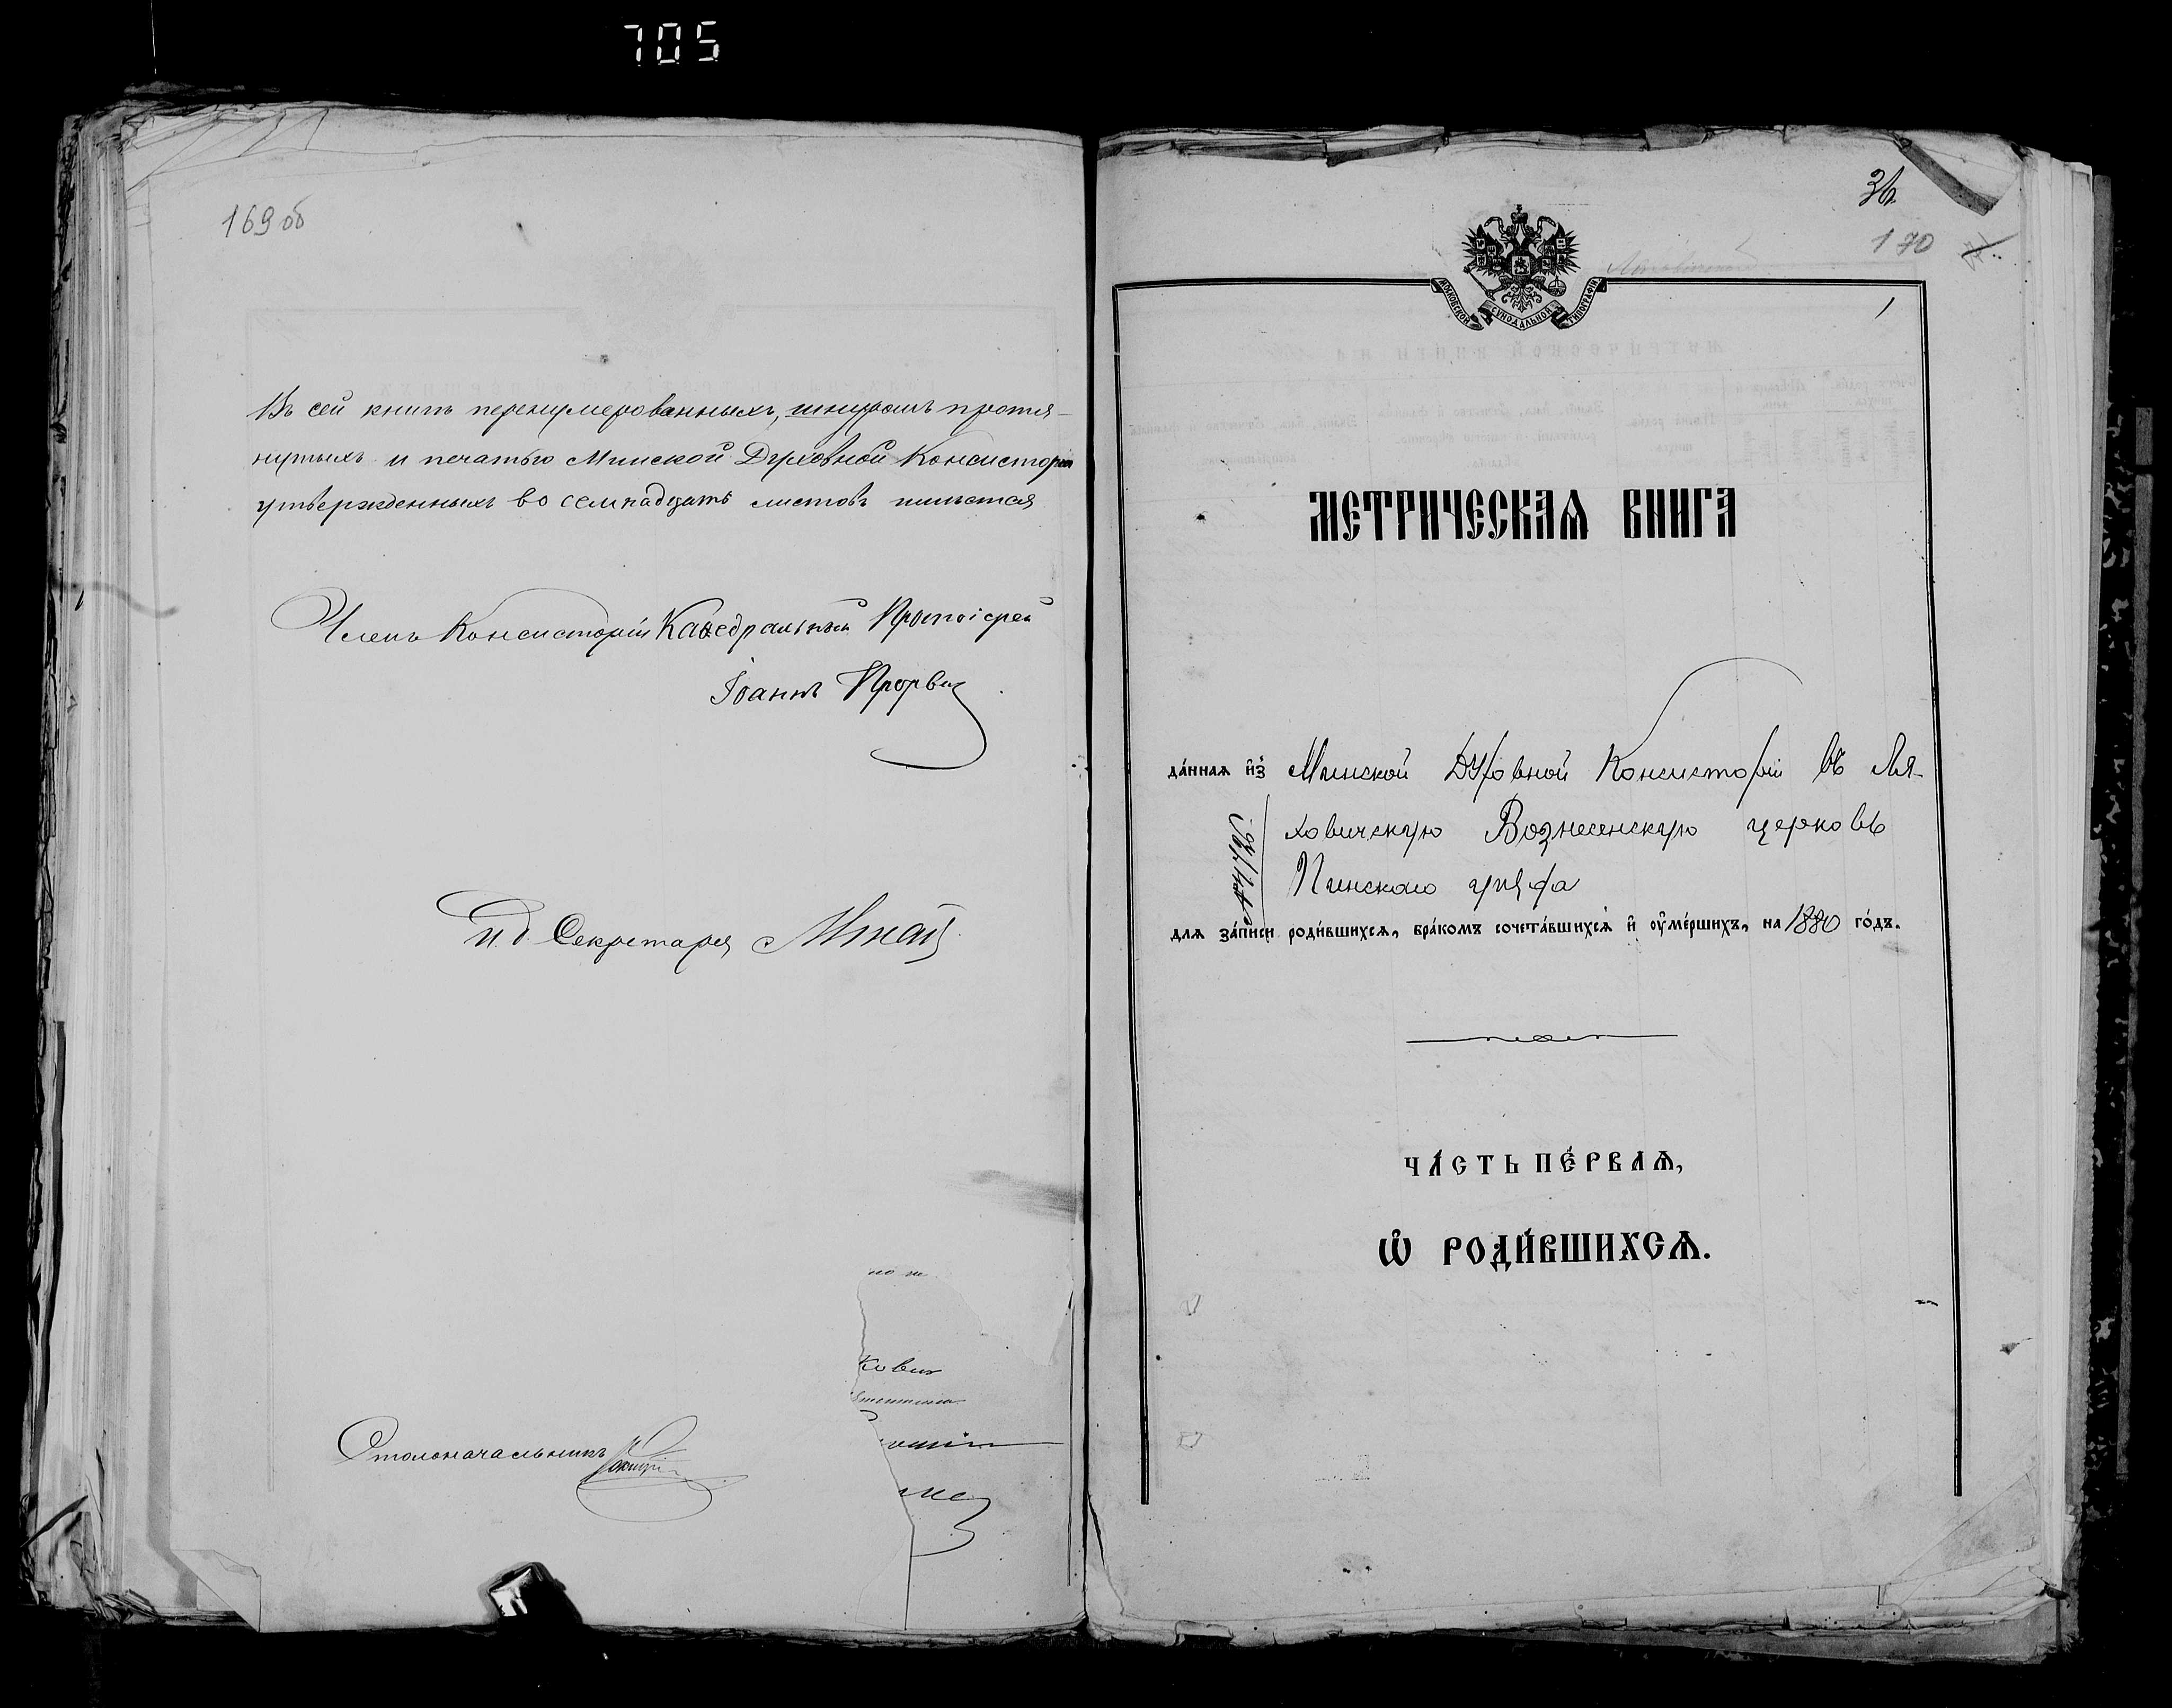 705
169 об
Въ сей книгѣ перенумерованныхъ, шнуромъ протя-
нутыхъ и печатью Минской Духовной Консисторіи
утвержденныхъ во семнадцать листовъ имѣется
Членъ Консисторіи Каѳедральный Протоіерей
Іоаннъ
и. д. Секретаря
Столоначальникъ
36.
170
1
МОСКОВСКОЙ СѴНОДАЛЬНОЙ ТИПОГРАФІИ
МЕТРИЧЕСКАѦ КНИГА
да́нная и҆зъ Минской Духовной Консисторіи въ Ля-
ховичскую Вознесенскую церковь
Пинскаго уѣзда
для за́писи роди́вшихсѧ, бра́комъ сочета́вшихсѧ и҆ ᲂу҆ме́ршихъ, на 1880 го́дъ.
ЧА́СТЬ ПЕ́РВАѦ,
Ѡ҆ РОДИ́ВШИХСѦ.